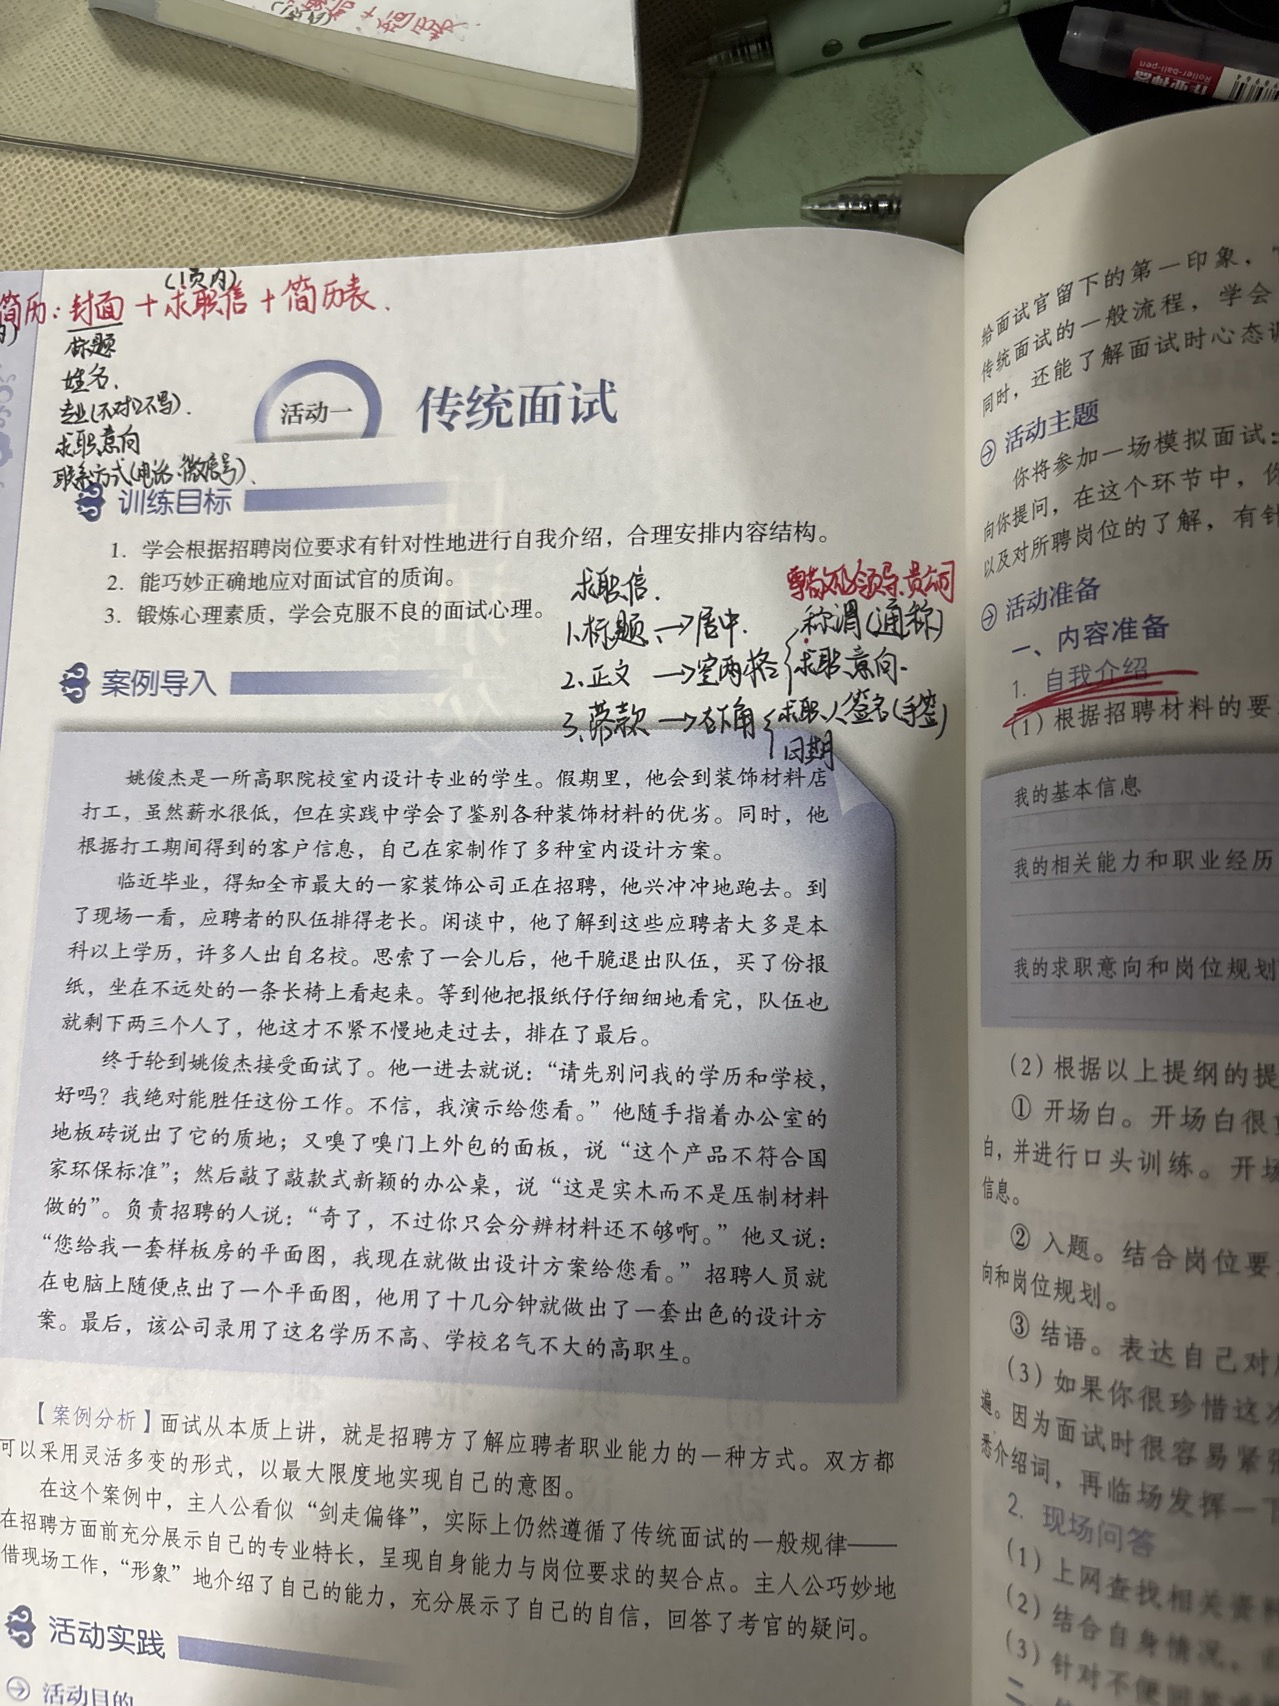 (1页内)
简历：封面＋求职信＋简历表.
标题
姓名.
专业(不对口不写).
求职意向
联系方式(电话、微信号).
活动一 传统面试
训练目标
1. 学会根据招聘岗位要求有针对性地进行自我介绍，合理安排内容结构。
2. 能巧妙正确地应对面试官的质询。
3. 锻炼心理素质，学会克服不良的面试心理。
求职信.
尊敬的领导.贵公司
1.标题→居中.
称谓(通称)
2.正文→空两格
求职意向.
3.落款→右下角
求职人签名(手签)
日期
案例导入
姚俊杰是一所高职院校室内设计专业的学生。假期里，他会到装饰材料店
打工，虽然薪水很低，但在实践中学会了鉴别各种装饰材料的优劣。同时，他
根据打工期间得到的客户信息，自己在家制作了多种室内设计方案。
临近毕业，得知全市最大的一家装饰公司正在招聘，他兴冲冲地跑去。到
了现场一看，应聘者的队伍排得老长。闲谈中，他了解到这些应聘者大多是本
科以上学历，许多人出自名校。思索了一会儿后，他干脆退出队伍，买了份报
纸，坐在不远处的一条长椅上看起来。等到他把报纸仔仔细细地看完，队伍也
就剩下两三个人了，他这才不紧不慢地走过去，排在了最后。
终于轮到姚俊杰接受面试了。他一进去就说：“请先别问我的学历和学校，
好吗？我绝对能胜任这份工作。不信，我演示给您看。”他随手指着办公室的
地板砖说出了它的质地；又嗅了嗅门上外包的面板，说“这个产品不符合国
家环保标准”；然后敲了敲款式新颖的办公桌，说“这是实木而不是压制材料
做的”。负责招聘的人说：“奇了，不过你只会分辨材料还不够啊。”他又说：
“您给我一套样板房的平面图，我现在就做出设计方案给您看。”招聘人员就
在电脑上随便点出了一个平面图，他用了十几分钟就做出了一套出色的设计方
案。最后，该公司录用了这名学历不高、学校名气不大的高职生。
【案例分析】面试从本质上讲，就是招聘方了解应聘者职业能力的一种方式。双方都
可以采用灵活多变的形式，以最大限度地实现自己的意图。
在这个案例中，主人公看似“剑走偏锋”，实际上仍然遵循了传统面试的一般规律——
在招聘方面前充分展示自己的专业特长，呈现自身能力与岗位要求的契合点。主人公巧妙地
借现场工作，“形象”地介绍了自己的能力，充分展示了自己的自信，回答了考官的疑问。
活动实践
活动目的
给面试官留下的第一印象，
传统面试的一般流程，学会
同时，还能了解面试时心态
活动主题
你将参加一场模拟面试：
向你提问，在这个环节中，你
以及对所聘岗位的了解，有针
活动准备
一、内容准备
1. 自我介绍
(1) 根据招聘材料的要
我的基本信息
我的相关能力和职业经历
我的求职意向和岗位规划
(2) 根据以上提纲的提
① 开场白。开场白很
白，并进行口头训练。开场
信息。
② 入题。结合岗位要
向和岗位规划。
③ 结语。表达自己对
(3) 如果你很珍惜这次
遍。因为面试时很容易紧张
悉介绍词，再临场发挥一下
2. 现场问答
(1) 上网查找相关资料
(2) 结合自身情况，
(3) 针对不便
二、
Roller-ball-pen